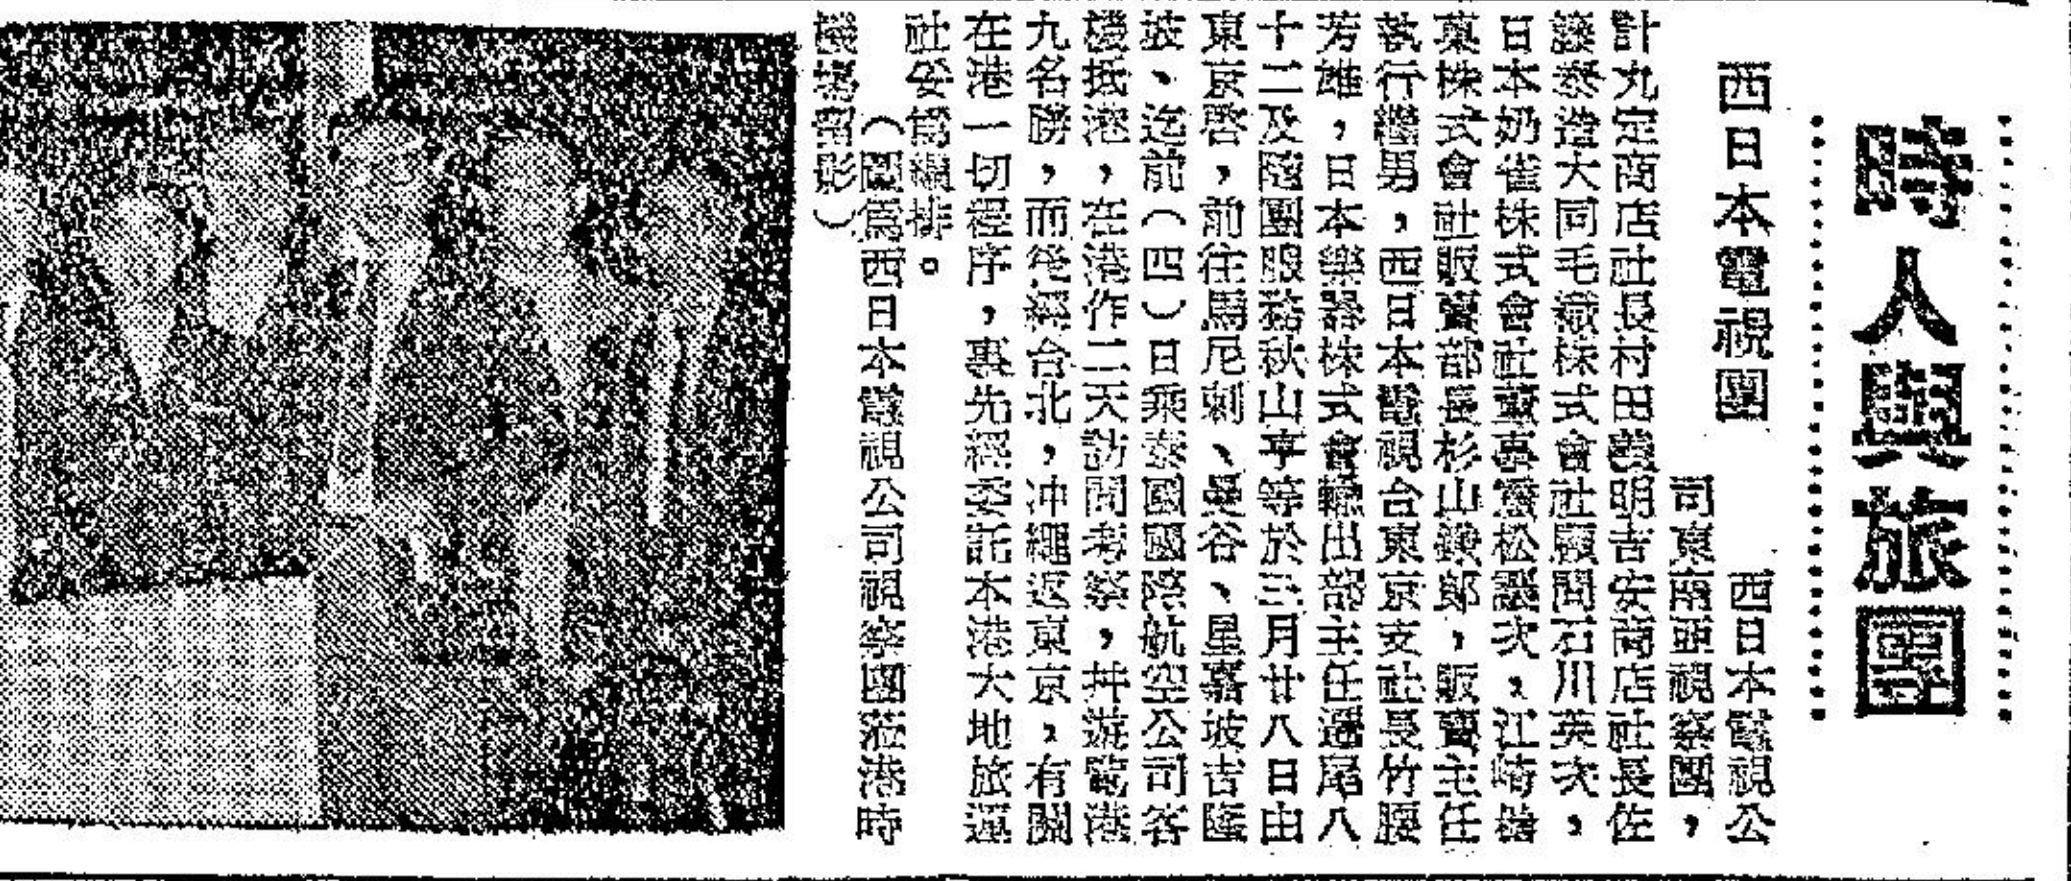 時人與旅團
西日本電視團
西日本電視公
司東南亞視察團，
計丸定商店社長村田義明吉安商店社長佐
藤泰造大同毛織株式會社顧問石川英次，
日本奶雀株式會社董事 松 次，江崎
菓株式會社販賣部長杉山鐵郎，販賣主任
執行 男，西日本電視台東京支社長竹腰
芳雄，日本樂器株式會輸出部主任 尾八
十二及隨團服務秋山亨等於三月廿八日由
東京啓，前往馬尼剌、曼谷、星嘉坡吉隆
坡、迄前（四）日乘泰國國際航空公司客
機抵港，在港作二天訪問考察，幷遊覽港
九名勝，而後經台北，冲繩返東京，有關
在港一切程序，事先經委託本港大地旅運
社妥爲編排。
（圖爲西日本電視公司視察團蒞港時
機塲留影）